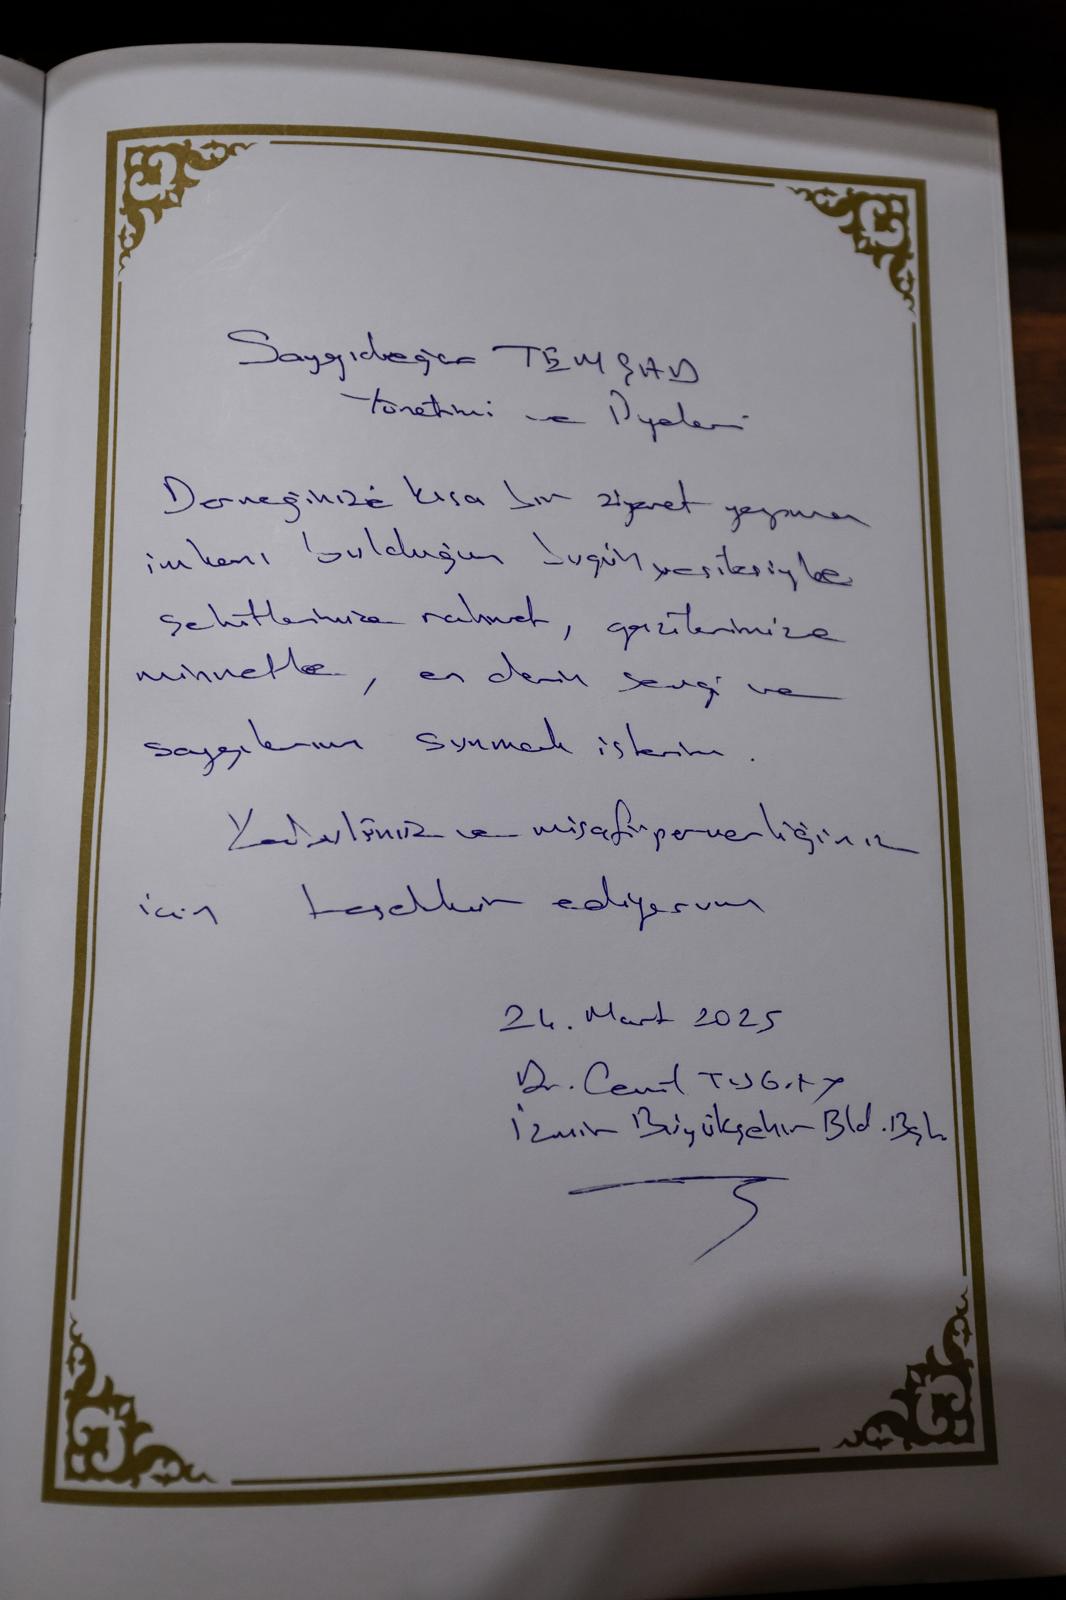 Saygıdeğer TEMŞAD
Yönetimi ve Üyeleri
Derneğinize kısa bir ziyaret yapma
imkanı bulduğum bugün vesilesiyle
şehitlerimize rahmet, gazilerimize
minnetle, en derin sevgi ve
saygılarımı sunmak isterim.
ve misafirperverliğiniz
için teşekkür ediyorum
24. Mart 2025
Dr. Cemil TUGAY
İzmir Büyükşehir Bld. Bşk.